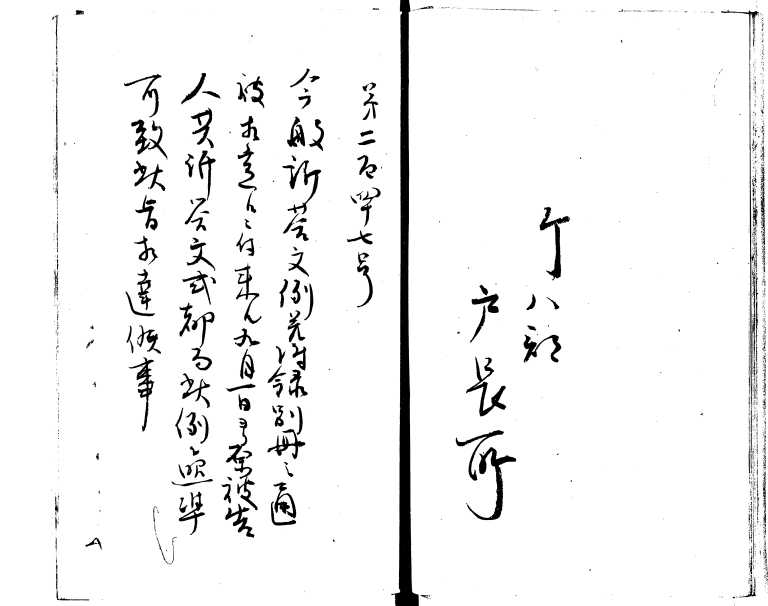 第二百四十七号
今般訴答文例并附録別冊之通
被相定候ニ付来ル九月一日ヨリ原被告
人共訴答文式都而此例ニ照準
可致此旨相達候事
戸長所